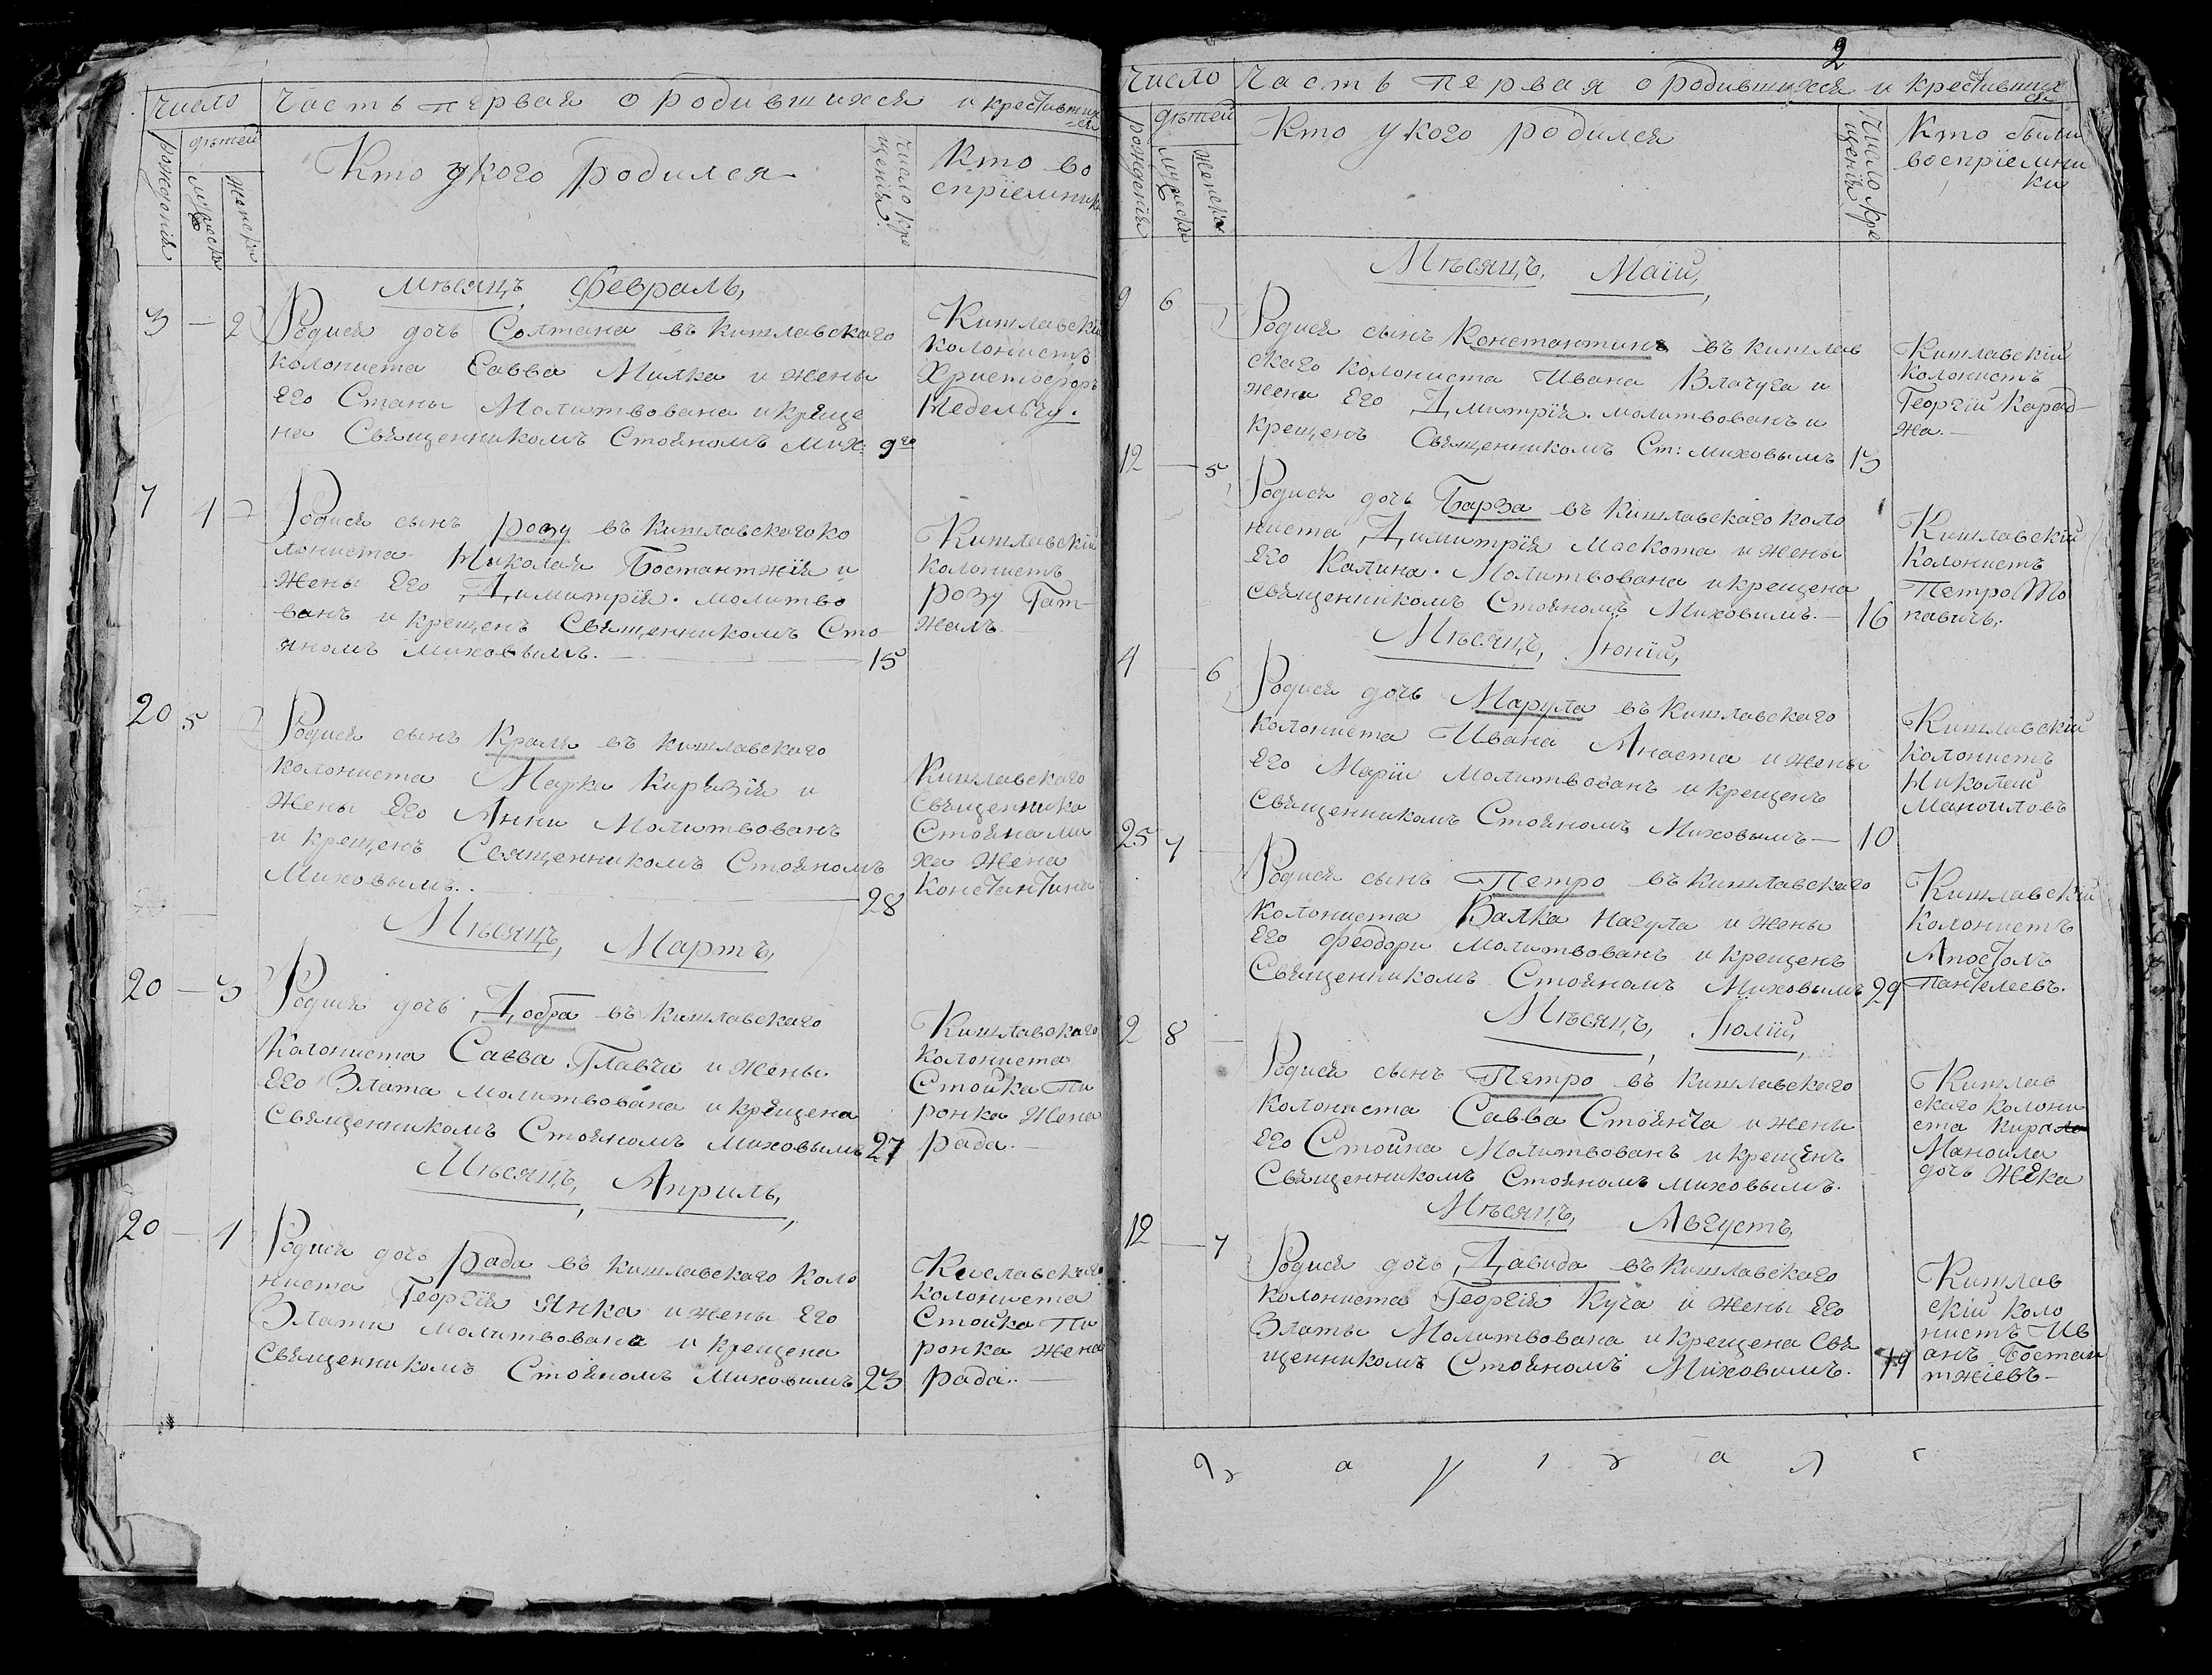 Число Часть первая о родившихся и крестивших
ся
рождения
детей
мужеска
женска
Кто у кого родился
число кре
щения
Кто во
сприемник
Месяцъ, Февраль,
3 — 2 Родися дочь Солтана въ кишлавскаго
колониста Савва Милка и жены
его Станы Молитвована и креще
на Священникомъ Стояномъ Мих: 9го
Кишлавскій
колонистъ
Христофоръ
Недельчу.
7 4 — Родися сынъ розу въ Кишлавскаго ко
лониста Николая Бостантжія и
жены его Димитрія. молитво
ванъ и крещенъ Священникомъ Сто
яномъ Миховымъ. — 15
Кишлавскій
колонистъ
розу Гат-
жалъ
20 5 Родися сынъ Краля въ кишлавскаго
колониста Марка Кирязія и
жены его Анни Молитвованъ
и крещенъ Священникомъ Стояномъ
Миховымъ. — 28
Кишлавскаго
Священника
Стояна ми
ха жена
Константина
Месяцъ, Мартъ,
20 — 3 Родися дочь Добра въ Кишлавскаго
Колониста Савва Главча и жены
его Злата молитвована и крещена
Священникомъ Стояномъ Миховымъ 27
Кишлавскаго
колониста
Стойка Пи
ронка жена
рада. —
Месяцъ, Априль,
20 — 4 Родися дочь рада въ Кишлавскаго коло
ниста Георгія Янка и жены его
Злати молитвована и крещена
Священникомъ Стояномъ Миховымъ 23
Киславскаго
колониста
Стойка Пи
ронка жена
рада. —
2
Число Часть первая о родившихся и крестивших
ся
рождения
детей
мужеска
женска
Кто у кого родился
Число кре
щения
Кто были
восприемни
ки
Месяцъ, Маій,
9 6 — Родися сынъ Константинъ въ кишлав
скаго колониста Ивана Влачуга и
жени его Димитрія. молитвованъ и
крещенъ Священникомъ Ст: Миховымъ 13
Кишлавскій
колонистъ
Георгій Карад-
жа. —
12 — 5 Родися дочь Барза въ Кишлавскаго коло
ниста Димитрія Маскота и жены
его Калина. Молитвована и крещена
Священникомъ Стояномъ Миховымъ. — 16
Кишлавскій
Колонистъ
Петро То
павичъ.
Месяцъ, Іюній,
4 — 6 Родися дочь Марула въ Кишлавскаго
колониста Ивана Анаста и жены
его Маріи Молитвованъ и крещенъ
Священникомъ Стояномъ Миховымъ — 10
Кишлавскій
колонистъ
Николай
Маноиловъ
25 7 — Родися сынъ Петро въ Кишлавскаго
колониста Валка Нагула и жены
его Феодори молитвованъ и крещенъ
Священникомъ Стояномъ Миховымъ 29
Кишлавскій
колонистъ
Апостолъ
Пантелеевъ.
Месяцъ, Іюлій,
2 8 — Родися сынъ Петро въ Кишлавскаго
колониста Савва Стоянча и жены
его Стойна Молитвованъ и крещенъ
Священникомъ Стояномъ Миховымъ.
Кишлав
скаго колони
ста Кирало
Маноила
дочь Жека
Месяцъ, Августъ,
12 — 7 Родися дочь Давида въ Кишлавскаго
колониста Георгія Куча и жены его
Златы Молитвована и крещена Свя
щенникомъ Стояномъ Миховымъ. 19
Кишлав
скій коло
нистъ Ив
анъ Бостан
тжіевъ —